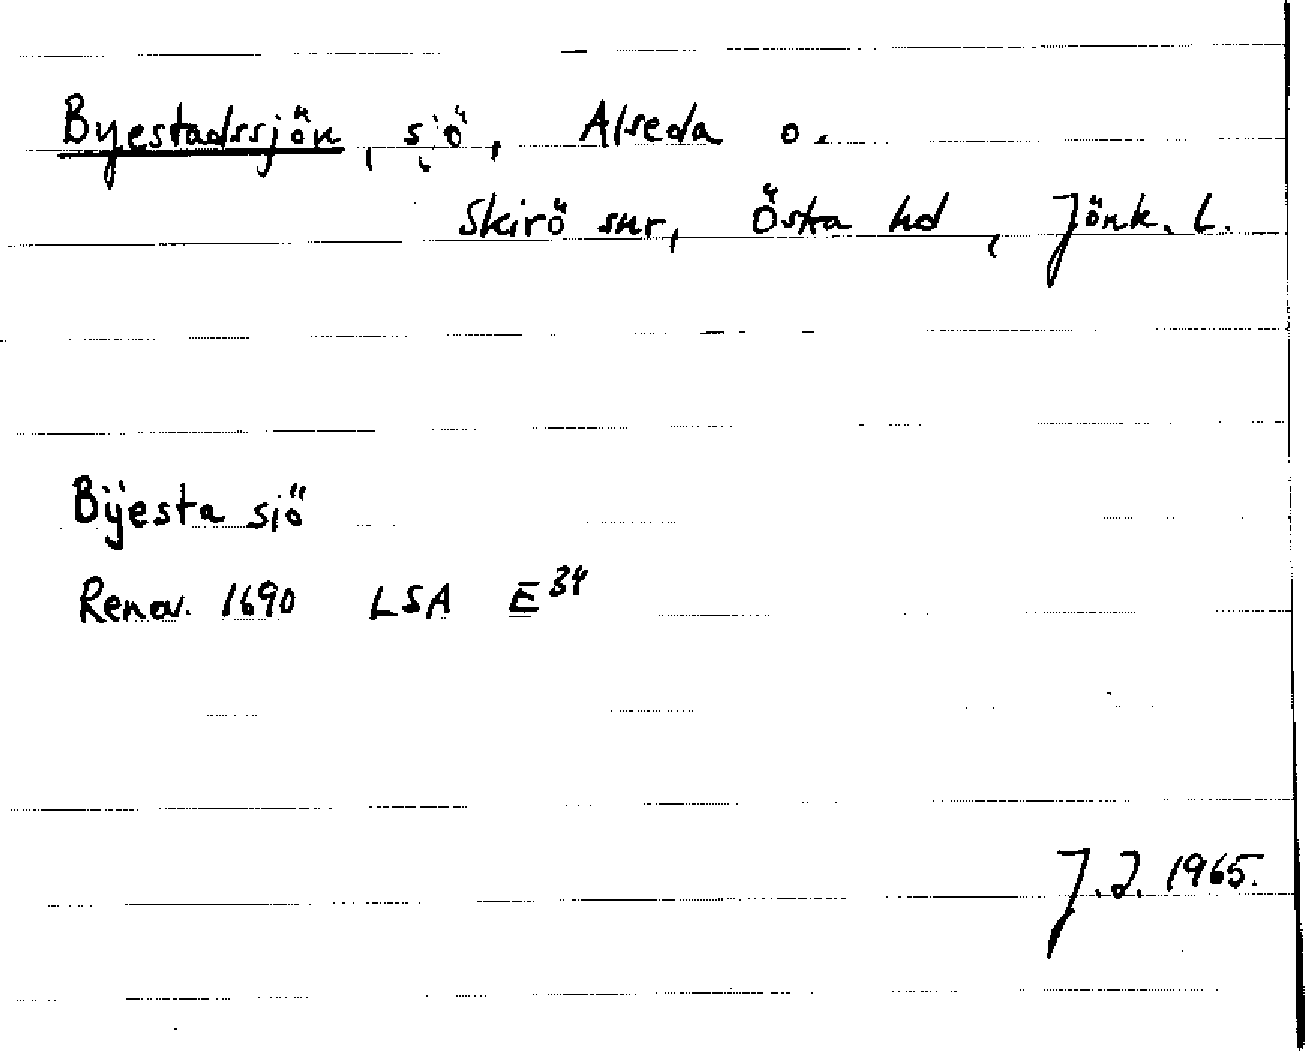 Byestadssjön, sjö, Alseda o.
Skirö snr, Östra hd, Jönk. L.
Bÿesta siö
Renov. 1690 LSA E 34
J.I. 1965.